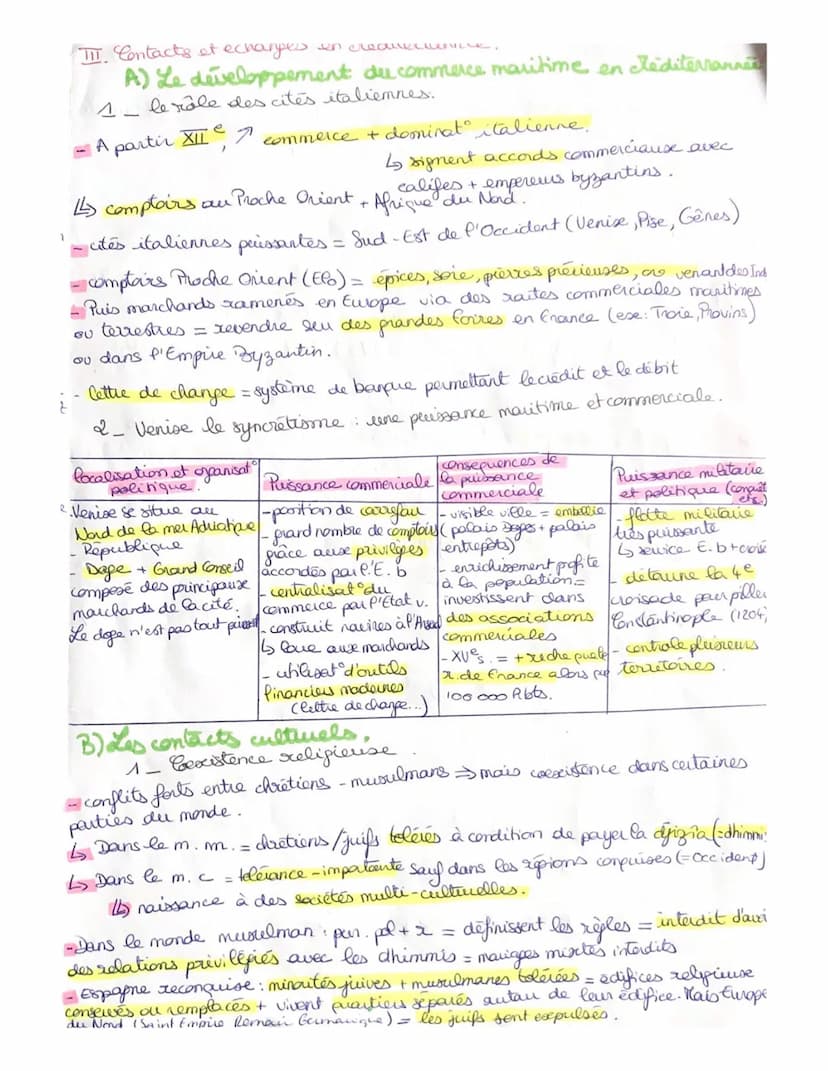 III. Contacts et echanges en
A) Le développement du commerce maritime en Méditerrannée
1_ le rôle des cités italiennes.
- A partir XIIe, ↗ commerce + dominat° italienne.
↳ signent accords commerciause avec
califes + empereurs byzantins.
↳ comptoirs au Proche Orient + Afrique du Nord.
- cités italiennes puissantes = Sud-Est de l'Occident (Venise, Pise, Gênes)
- comptoirs Proche Orient (EPO) = épices, soie, pierres précieuses, or venant des Ind
- Puis marchands ramenés en Europe via des routes commerciales maritimes
ou terrestres = revendre sur des grandes foires en France (exe: Troie, Provins)
ou dans l'Empire Byzantin.
- lettre de change = système de banque permettant le crédit et le débit
2_ Venise le syncrétisme : une puissance maritime et commerciale.
localisation et organisat°
politique.
Puissance commerciale
consequences de
la puissance
commerciale
Puissance militaire
et politique (conquêt
etc.)
Venise se situe au
Nord de la mer Adriatique
- République
- Doge + Grand Conseil
composé des principaux
marchands de la cité.
Le doge n'est pas tout puissant
- position de carrefour
- grand nombre de comptoirs
grâce ause privilèges
accordés par l'E. b
- centralisat° du
commerce par l'Etat v.
- construit navires à l'Arsenal
↳ loue aux marchands
- utilisat° d'outils
financiers modernes
(lettre de change...)
- visible ville = embellie
(palais Doges + palais
entrepôts)
- enrichissement profite
à la population =
investissent dans
des associations
commerciales
- XVe s. = + riche que le
r. de France alors que
100 000 Rbts.
- flotte militaire
très puissante
↳ service E. b + crois
- détourne la 4e
croisade pour piller
Constantinople (1204)
- controle plusieurs
territoires.
B) Les contacts culturels.
1_ Coexistence religieuse.
- conflits forts entre chrétiens - musulmans ⇒ mais coexistence dans certaines
parties du monde.
↳ Dans le m. m. = chrétiens/juifs tolérés à condition de payer la djizia (=dhimmi
↳ Dans le m. c = tolérance - importante sauf dans les régions conquises (= Occident)
↳ naissance à des sociétés multi-culturelles.
- Dans le monde musulman : pvr. pol + r = définissent les règles = interdit d'avoi
des relations privilégiés avec les dhimmis = mariages mixtes interdits
- Espagne reconquise : minorités juives + musulmanes tolérées = edifices religieuse
conservés ou remplacés + vivent quartiers séparés autour de leur édifice. Mais Europe
du Nord (Saint Empire Romain Germanique) = les juifs sont expulsés.